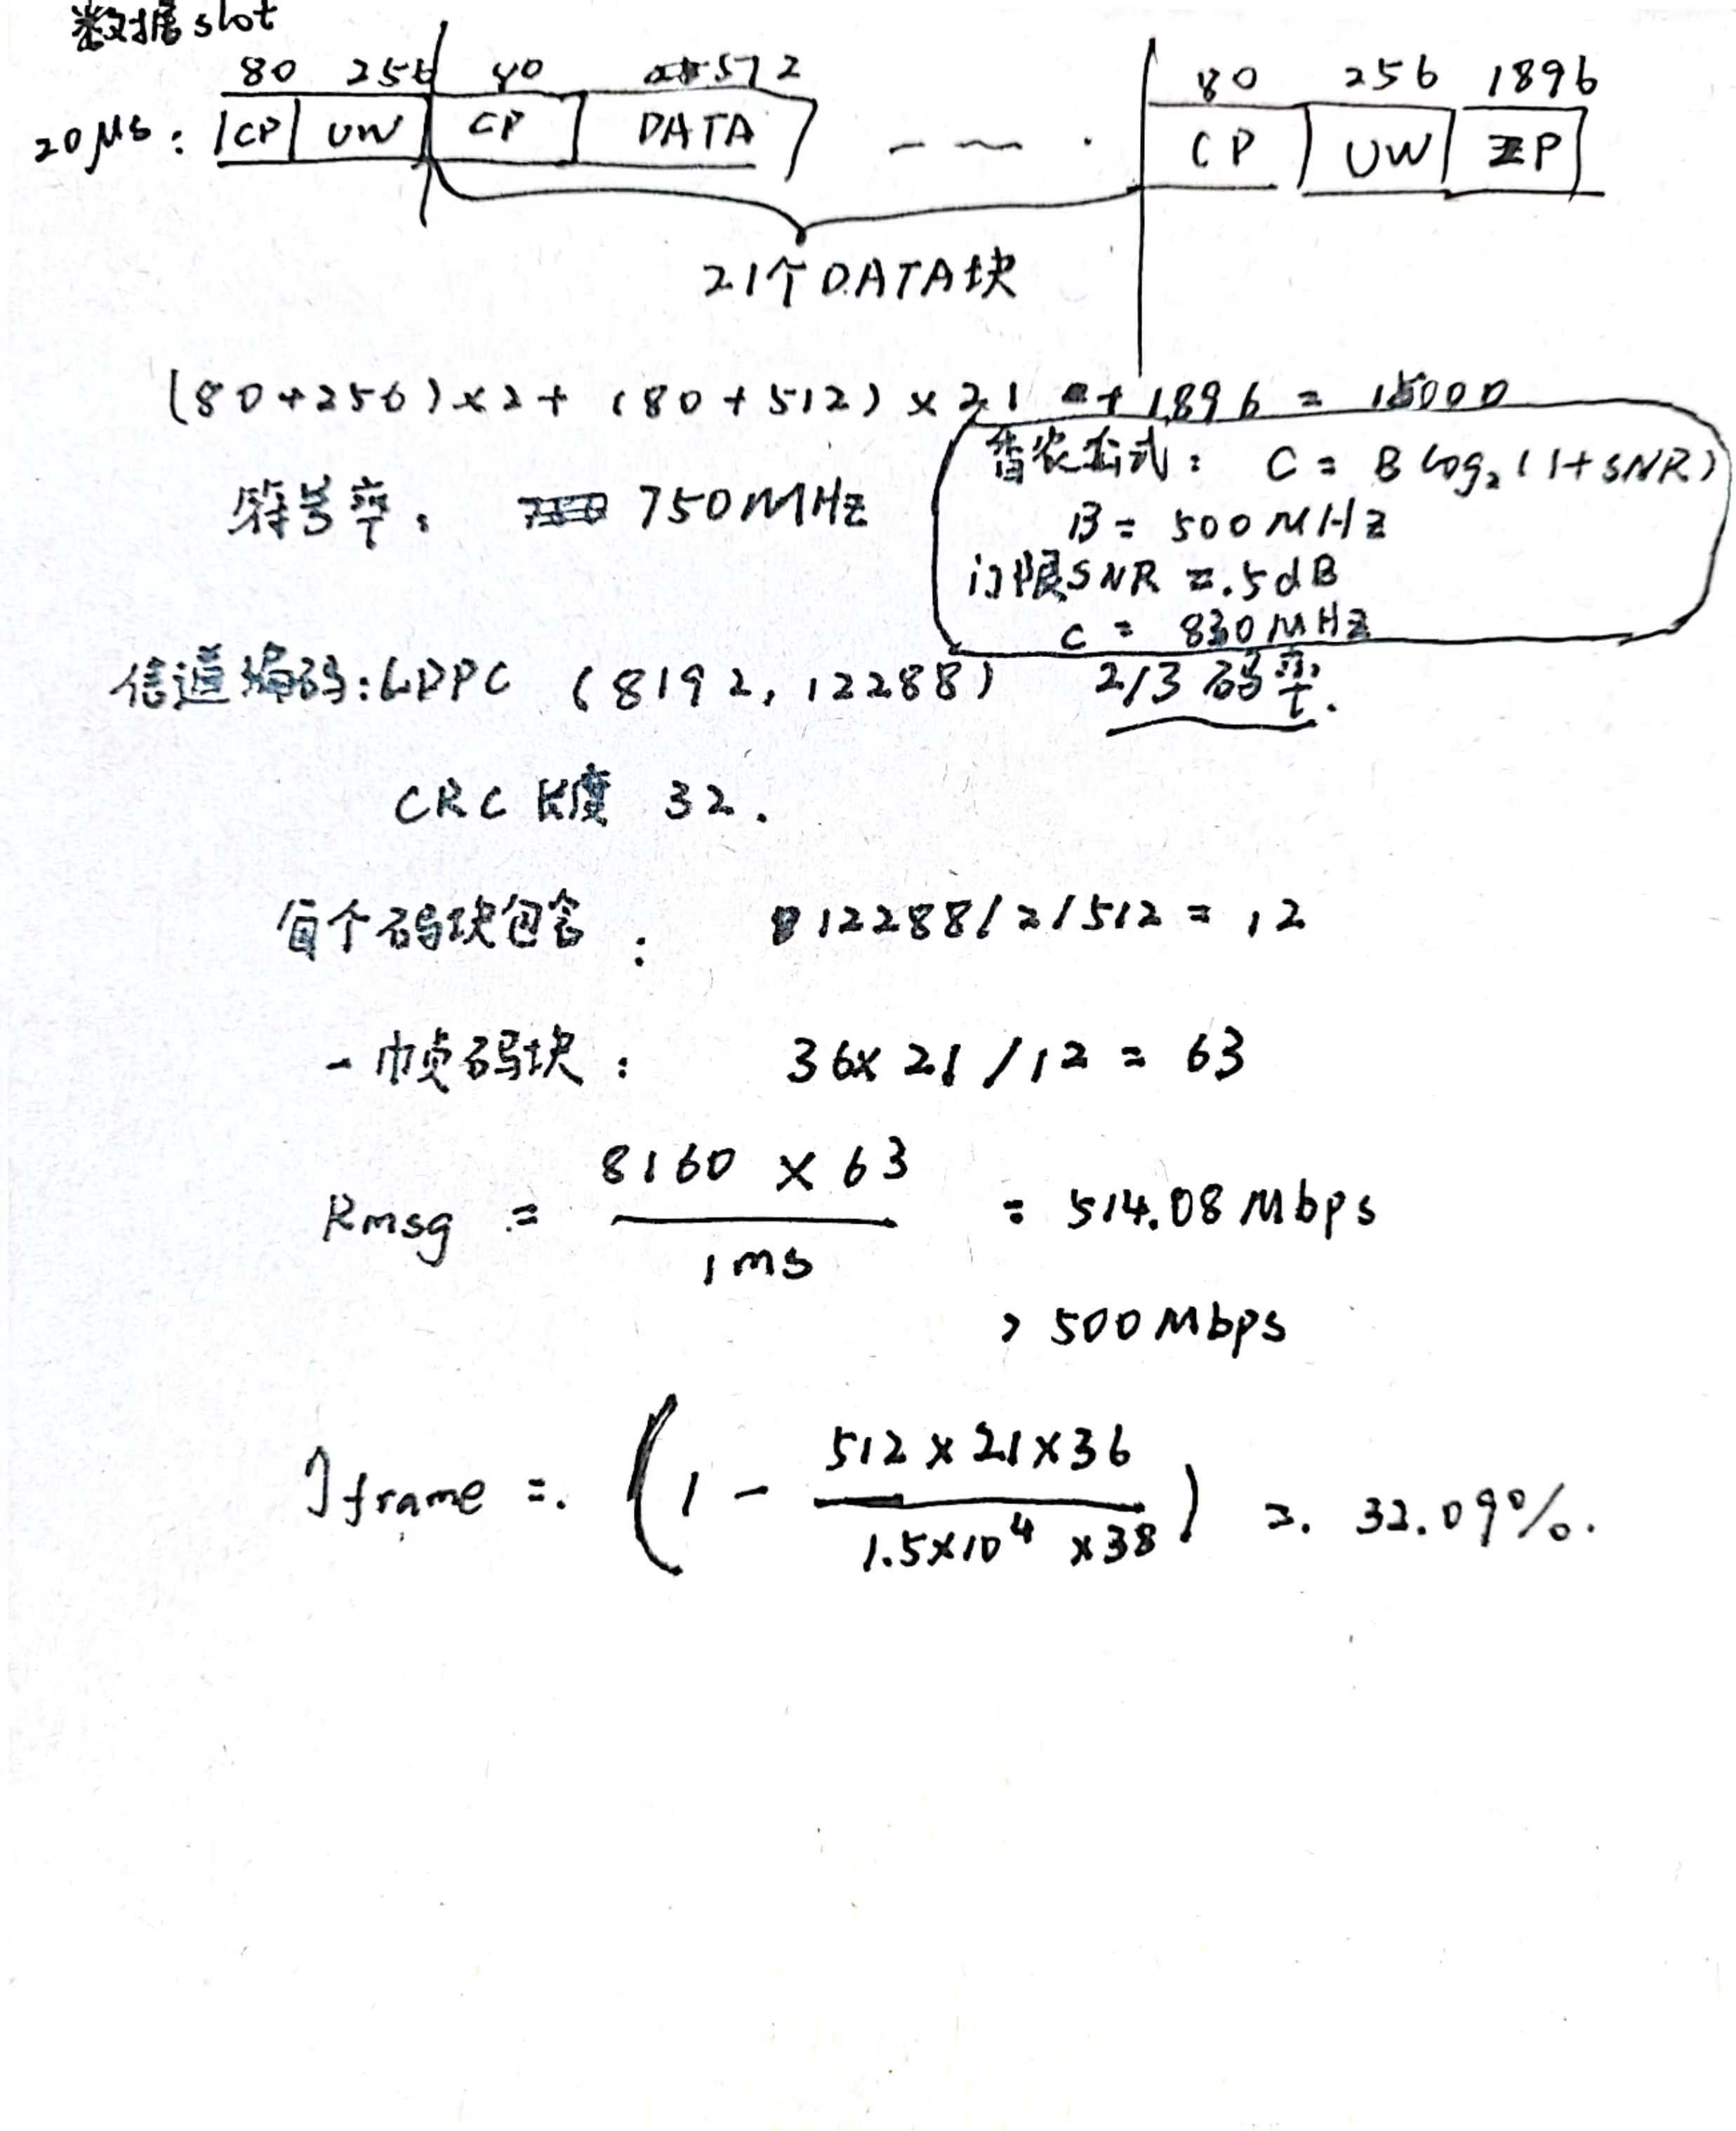 数据slot
80 256 80 512 80 256 1896
20μs: CP UW CP DATA ---- · CP UW ZP
21个DATA块
(80+256)×2+ (80+512)×21 + 1896 = 15000
香农公式: C = B log₂(1+SNR)
符号率: 750MHz
B = 500MHz
门限SNR = 5dB
C = 830MHz
信道编码:LDPC (8192, 12288) 2/3 码率.
CRC 长度 32.
每个码块包含: 12288/2/512 = 12
一帧码块: 36×21/12 = 63
Rmsg = 8160 × 63 / 1ms = 514.08Mbps
> 500Mbps
ηframe =. (1 - 512×21×36 / 1.5×10⁴×38) =. 32.09%.